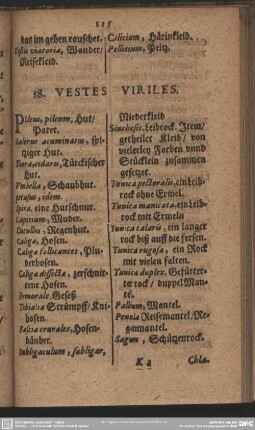 115
das im gehen rauschet.
Vestis viatoria, Wander/
Reisekleid.
Cilicium, Härinkleid.
Pellicium, Peltz.
18. VESTES VIRILES.
Pileus, pileum, Hut/
Paret.
Galerus acuminatus, spi-
tziger Hut.
Tiara, cidaris, Türckischer
Hut.
Umbella, Schaubhut.
petasus, idem.
Spira, eine Hutschnur.
Capitium, Muder.
Cucullus, Regenhut.
Caliga, Hosen.
Caligæ follicantes, Plu-
derhosen.
Caligæ dissectæ, zerschnit-
tene Hosen.
Femorale, Geseß
Tibialia Strümpff/ Kni-
hosen.
Fascia crurales, Hosen-
bänder.
Subligaculum, subligar,
Niederkleid
Leibrock. Item/
getheilet Kleid/ von
vielerley Farben vnnd
Stücklein zusammen
gesetzet.
Tunica pectoralis, ein Leib-
rock ohne Ermel.
Tunica manicata, ein Leib-
rock mit Ermeln
Tunica talaris, ein langer
rock biß auff die fersen.
Tunica rugosa, ein Rock
mit vielen falten.
Tunica duplex, Gefütter-
ter rock/ duppel Man-
tel.
Pallium, Mantel.
Penula Reisemantel/ Re-
genmantel.
Sagum, Schützenrock.
Chla-